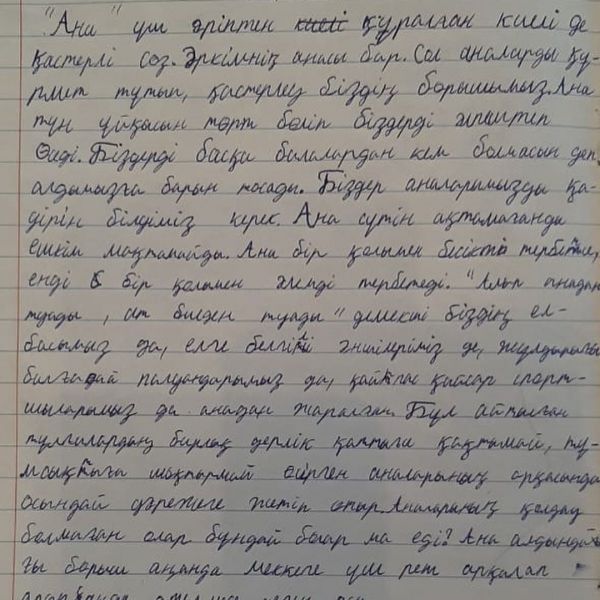 "Ана" үш әріптен құралған киелі де
қастерлі сөз. Әркімнің анасы бар. Сол аналарды құ-
рмет тұтып, қастерлеу біздің борышымыз. Ана
түн ұйқысын төрт бөліп біздерді әлпештеп
Өсірді. Біздерді басқа балалардан кем болмасын деп
алдымызға барын тосады. Біздер аналарымызды қа-
дірін білдіміз керек. Ана сүтін ақтамағанды
ешкім мақтамайды. Ана бір қолымен бесікті тербетсе,
енді бір қолымен әлемді тербетеді. "Алып анадан
туады, ат биеден туады" демекші біздің ел-
басымыз да, елге белгілі әншіміз де, жұлдызы
балғадай палуандарымыз да, қайтпас қайсар спорт-
шыларымыз да анадан жаралған. Бұл айтылған
тұлғалардың барлық дерлік қаттыға қақтамай, тұ-
мсықтыға шоқтырмай өсірген аналарының арқасында
осындай дәрежеге жетіп отыр. Аналарының қолдау
болмаған олар бұндай болар ма еді? Ана алдындағ
ғы борыш ақында меккеге үш рет арқалап